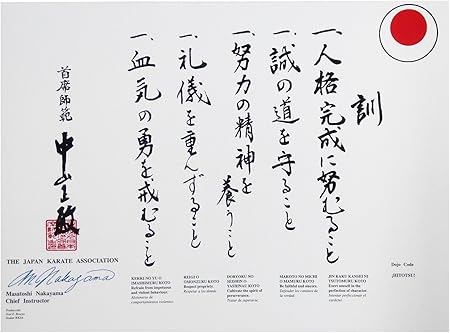 訓
一、人格完成に努むること
一、誠の道を守ること
一、努力の精神を養うこと
一、礼儀を重んずること
一、血気の勇を戒むること
首席師範
中山正敏
Dojo Code
¡HITOTSU!
JIN KAKU KANSEI NI
TSUTOMURU KOTO
Exert oneself in the
perfection of character.
Intentar perfeccionar el
carácter
MAKOTO NO MICHI
O MAMORU KOTO
Be faithful and sincere.
Defender los caminos de
la verdad
DORYOKU NO
SEISHIN O
YASHINAU KOTO
Cultivate the spirit of
perseverance.
Tratar de superarse
REIGI O
OMONZURU KOTO
Respect propriety.
Respetar a los demás
KEKKI NO YU O
IMASHIMURU KOTO
Refrain from impetuous
and violent behaviour.
Abstenerse de
comportamientos violentos
THE JAPAN KARATE ASSOCIATION
M. Nakayama
Masatoshi Nakayama
Chief Instructor